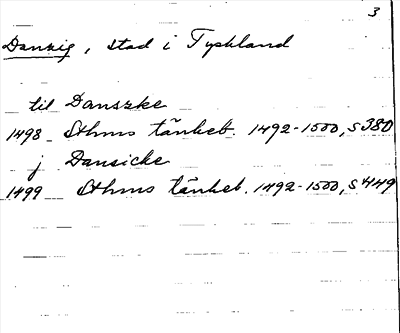 3
Danzig, stad i Tyskland
til Danszke
1498 Sthms tänkeb. 1492-1500, s 380
j Dansicke
1499 Sthms tänkeb. 1492-1500, s 449